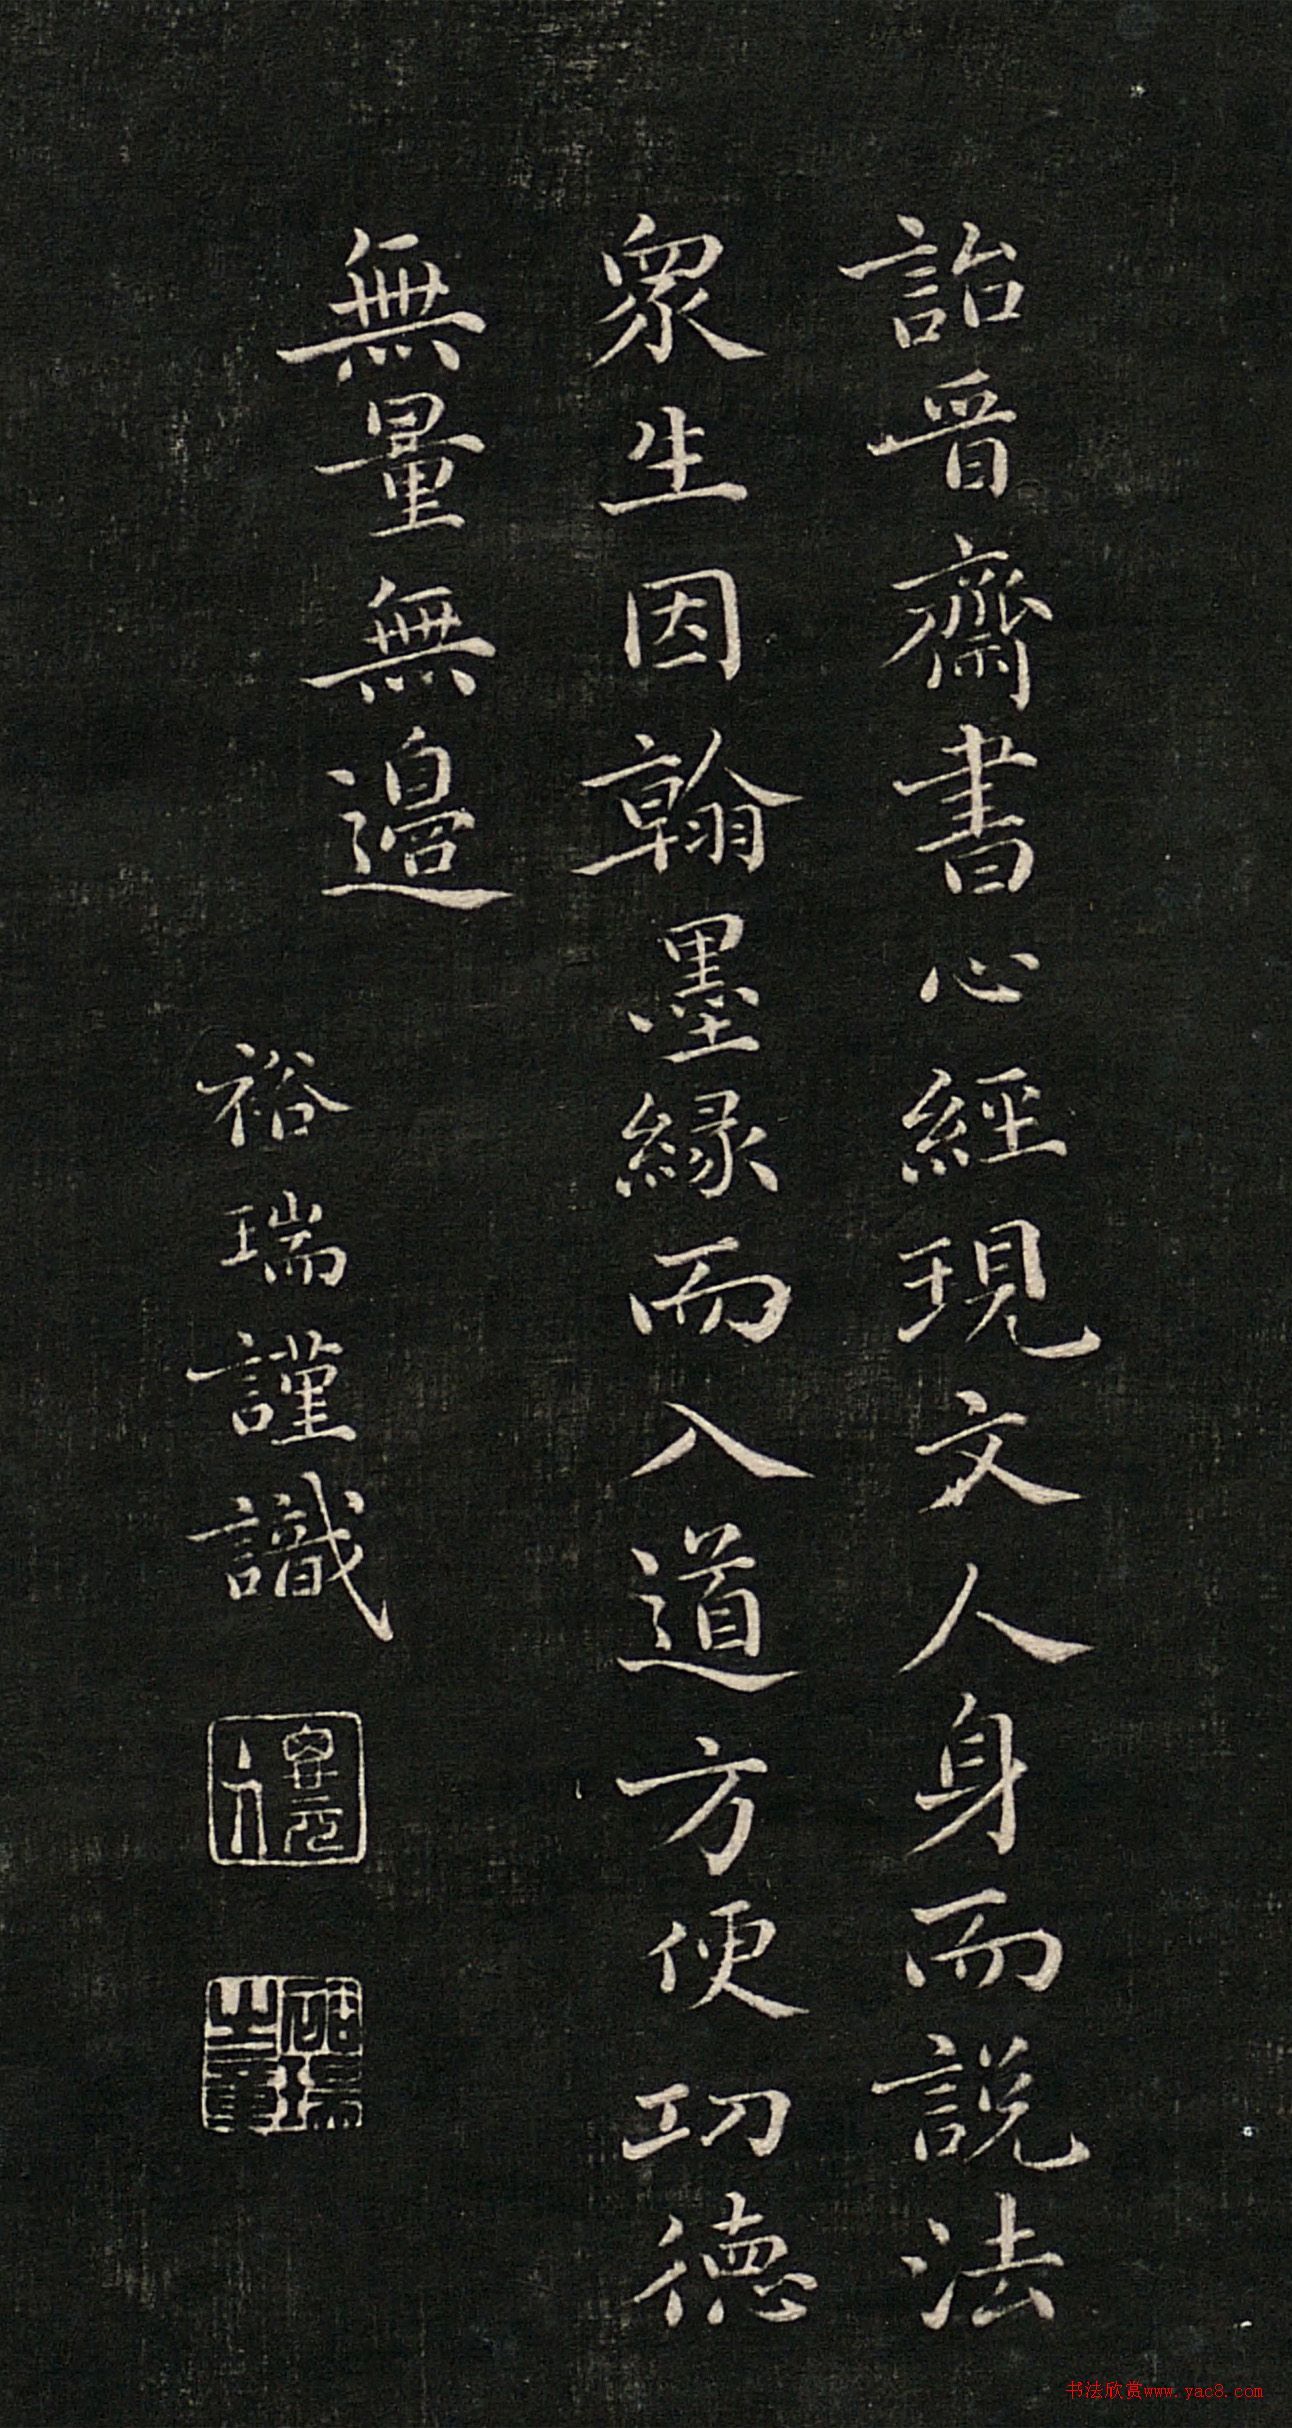 詒晉齋書心經現文人身而說法
眾生因翰墨緣而入道方便功德
無量無邊
裕瑞謹識
裕瑞
书法欣赏www.yac8.com